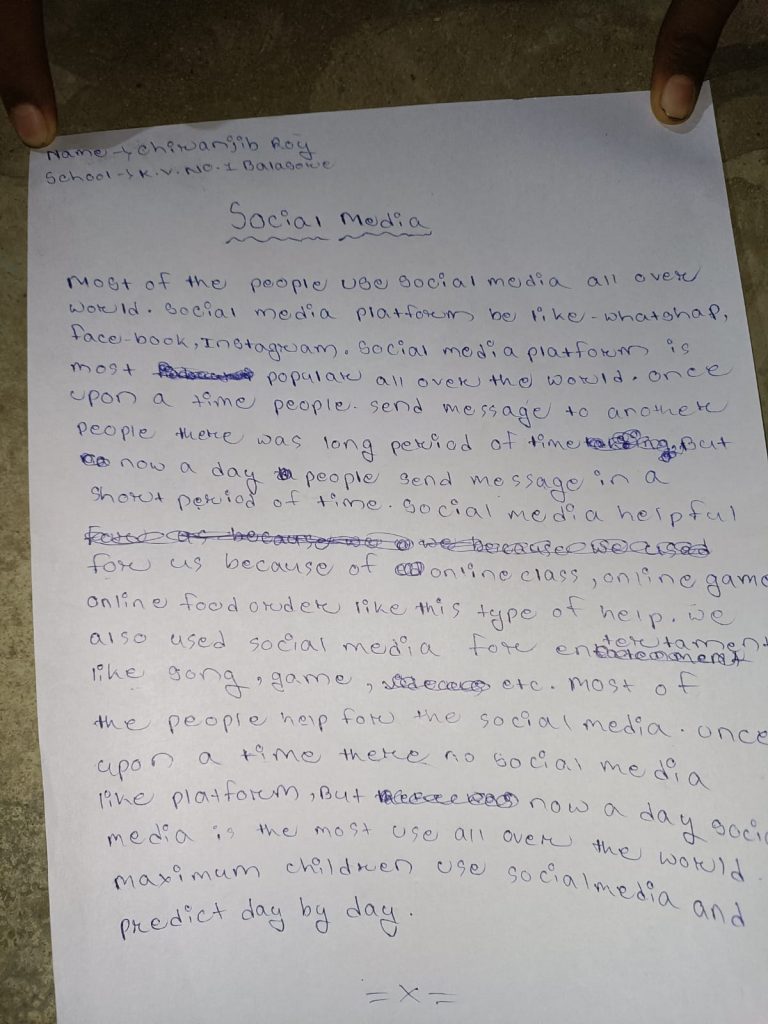 Name → Chiranjib Roy
School → K.V. NO. 1 Balasore
Social Media
Most of the people use social media all over
world. Social media platform be like - whatshap,
face-book, Instagram. Social media platform is
most popular all over the world. once
upon a time people. send message to another
people there was long period of time. But
now a day people send message in a
short period of time. Social media helpful
for us because of online class, online game
online food order like this type of help. we
also used social media for entertertament
like song, game, etc. Most of
the people help for the social media. once
upon a time there no social media
like platform, But now a day soci
media is the most use all over the world.
maximum children use socialmedia and
predict day by day.
= X =